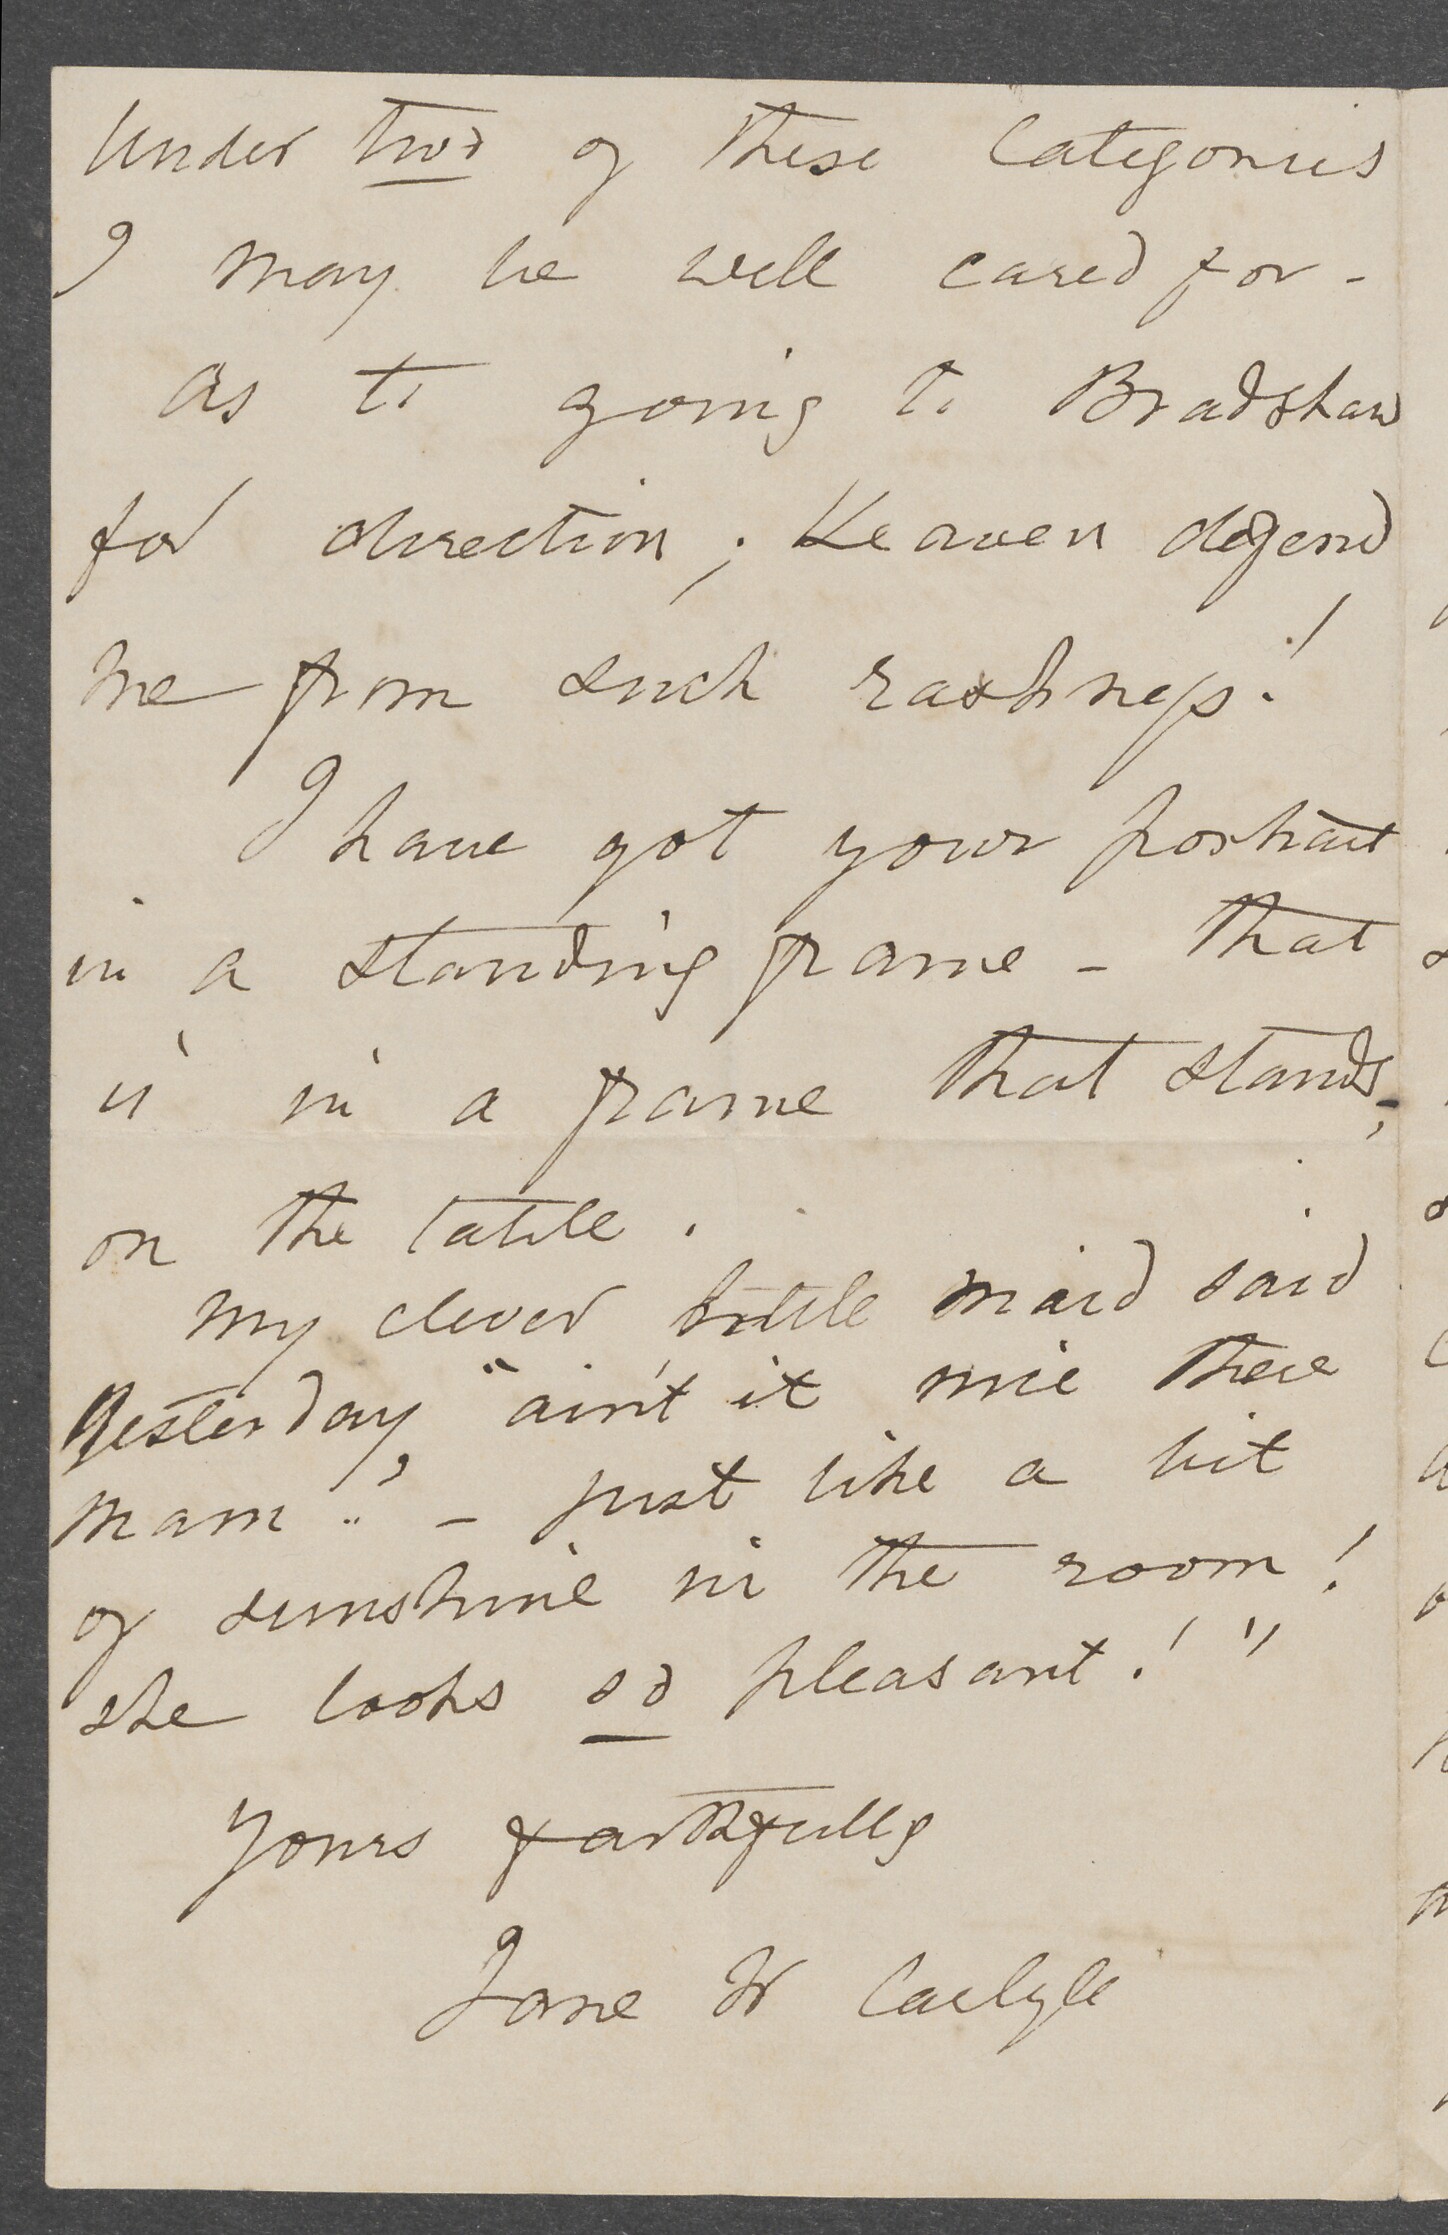 Under two of these Categories
I may be well cared for -
as to going to Bradshaw
for direction; Heaven defend
me from such rashness!
I have got your portrait
in a standing frame - that
is in a frame that stands,-
on the table.
My clever little maid said
yesterday, "ain't it nice there
mam" - just like a bit
of sunshine in the room!
she looks so pleasant!"
Yours faithfully
Jane W Carlyle